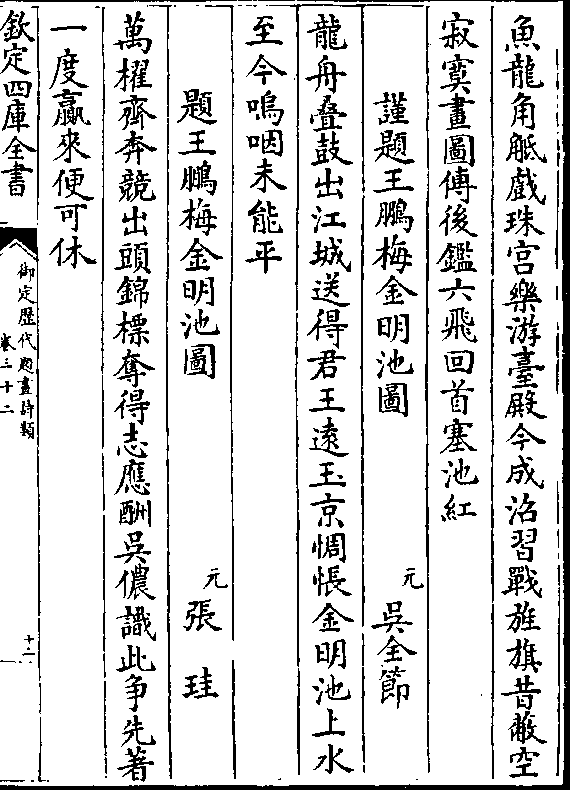 魚龍角觝戲珠宫樂游臺殿今成沼習戰旌旗昔蔽空
寂寞畫圖傳後鑑六飛回首塞池紅
謹題王鵬梅金明池圖
元吳全節
龍舟叠鼓出江城送得君王逺玉京惆悵金明池上水
至今嗚咽未能平
題王鵬梅金明池圖
元張珪
萬櫂齊奔競出頭錦標奪得志應酬吳儂識此争先著
一度贏來便可休
欽定四庫全書
御定歴代題畫詩類
卷三十二
十二